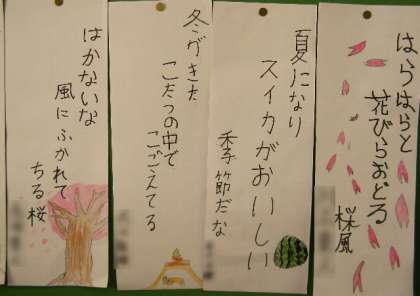 はらはらと
花びらおどる
桜風
夏になり
スイカがおいしい
季節だな
冬がきた
こたつの中で
こごえてる
はかないな
風にふかれて
ちる桜